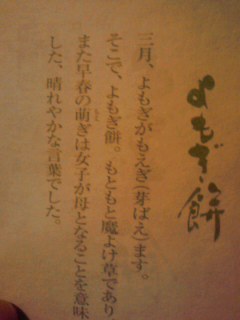 よもぎ餅
三月、よもぎがもえぎ(芽ばえ)ます。
そこで、よもぎ餅。もともと魔よけ草であり
また早春の萌ぎは女子が母となることを意味
した、晴れやかな言葉でした。